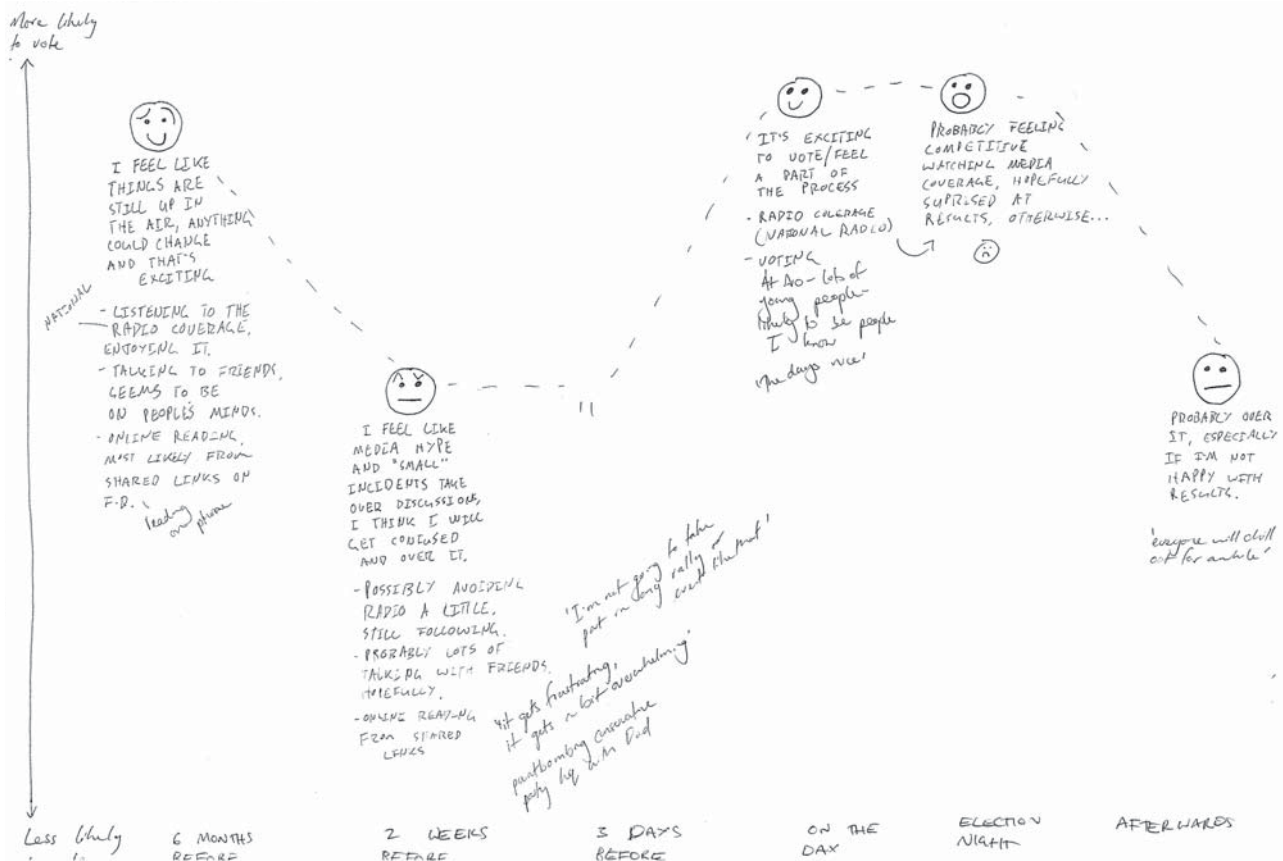 More likely
to vote
I FEEL LIKE
THINGS ARE
STILL UP IN
THE AIR, ANYTHING
COULD CHANGE
AND THAT'S
EXCITING
NATIONAL
- LISTENING TO THE
RADIO COVERAGE,
ENJOYING IT.
- TALKING TO FRIENDS,
SEEMS TO BE
ON PEOPLE'S MINDS.
- ONLINE READING,
MOST LIKELY FROM
SHARED LINKS ON
F.B.
reading
on phone
I FEEL LIKE
MEDIA HYPE
AND "SMALL"
INCIDENTS TAKE
OVER DISCUSSIONS,
I THINK I WILL
GET CONFUSED
AND OVER IT.
- POSSIBLY AVOIDING
RADIO A LITTLE,
STILL FOLLOWING.
- PROBABLY LOTS OF
TALKING WITH FRIENDS,
HOPEFULLY.
- ONLINE READING
FROM SHARED
LINKS
'I'm not going to take
part in any rally or
event like that'
'it gets frustrating,
it gets a bit overwhelming'
paintbombing conservative
party hq with Dad
IT'S EXCITING
TO VOTE/FEEL
A PART OF
THE PROCESS
- RADIO COVERAGE
(NATIONAL RADIO)
- VOTING
At - lots of
young people -
likely to be people
I know
'the days nice'
PROBABLY FEELING
COMPETITIVE
WATCHING MEDIA
COVERAGE, HOPEFULLY
SUPRISED AT
RESULTS, OTHERWISE...
PROBABLY OVER
IT, ESPECIALLY
IF I'M NOT
HAPPY WITH
RESULTS.
'everyone will chill
out for awhile'
Less likely
6 MONTHS
BEFORE
2 WEEKS
BEFORE
3 DAYS
BEFORE
ON THE
DAY
ELECTION
NIGHT
AFTERWARDS